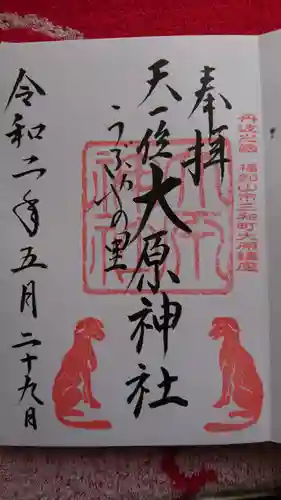 丹波之国 福知山市三和町大原鎮座
奉拝
天一位 大原神社
うぶやの里
令和二年五月二十九日